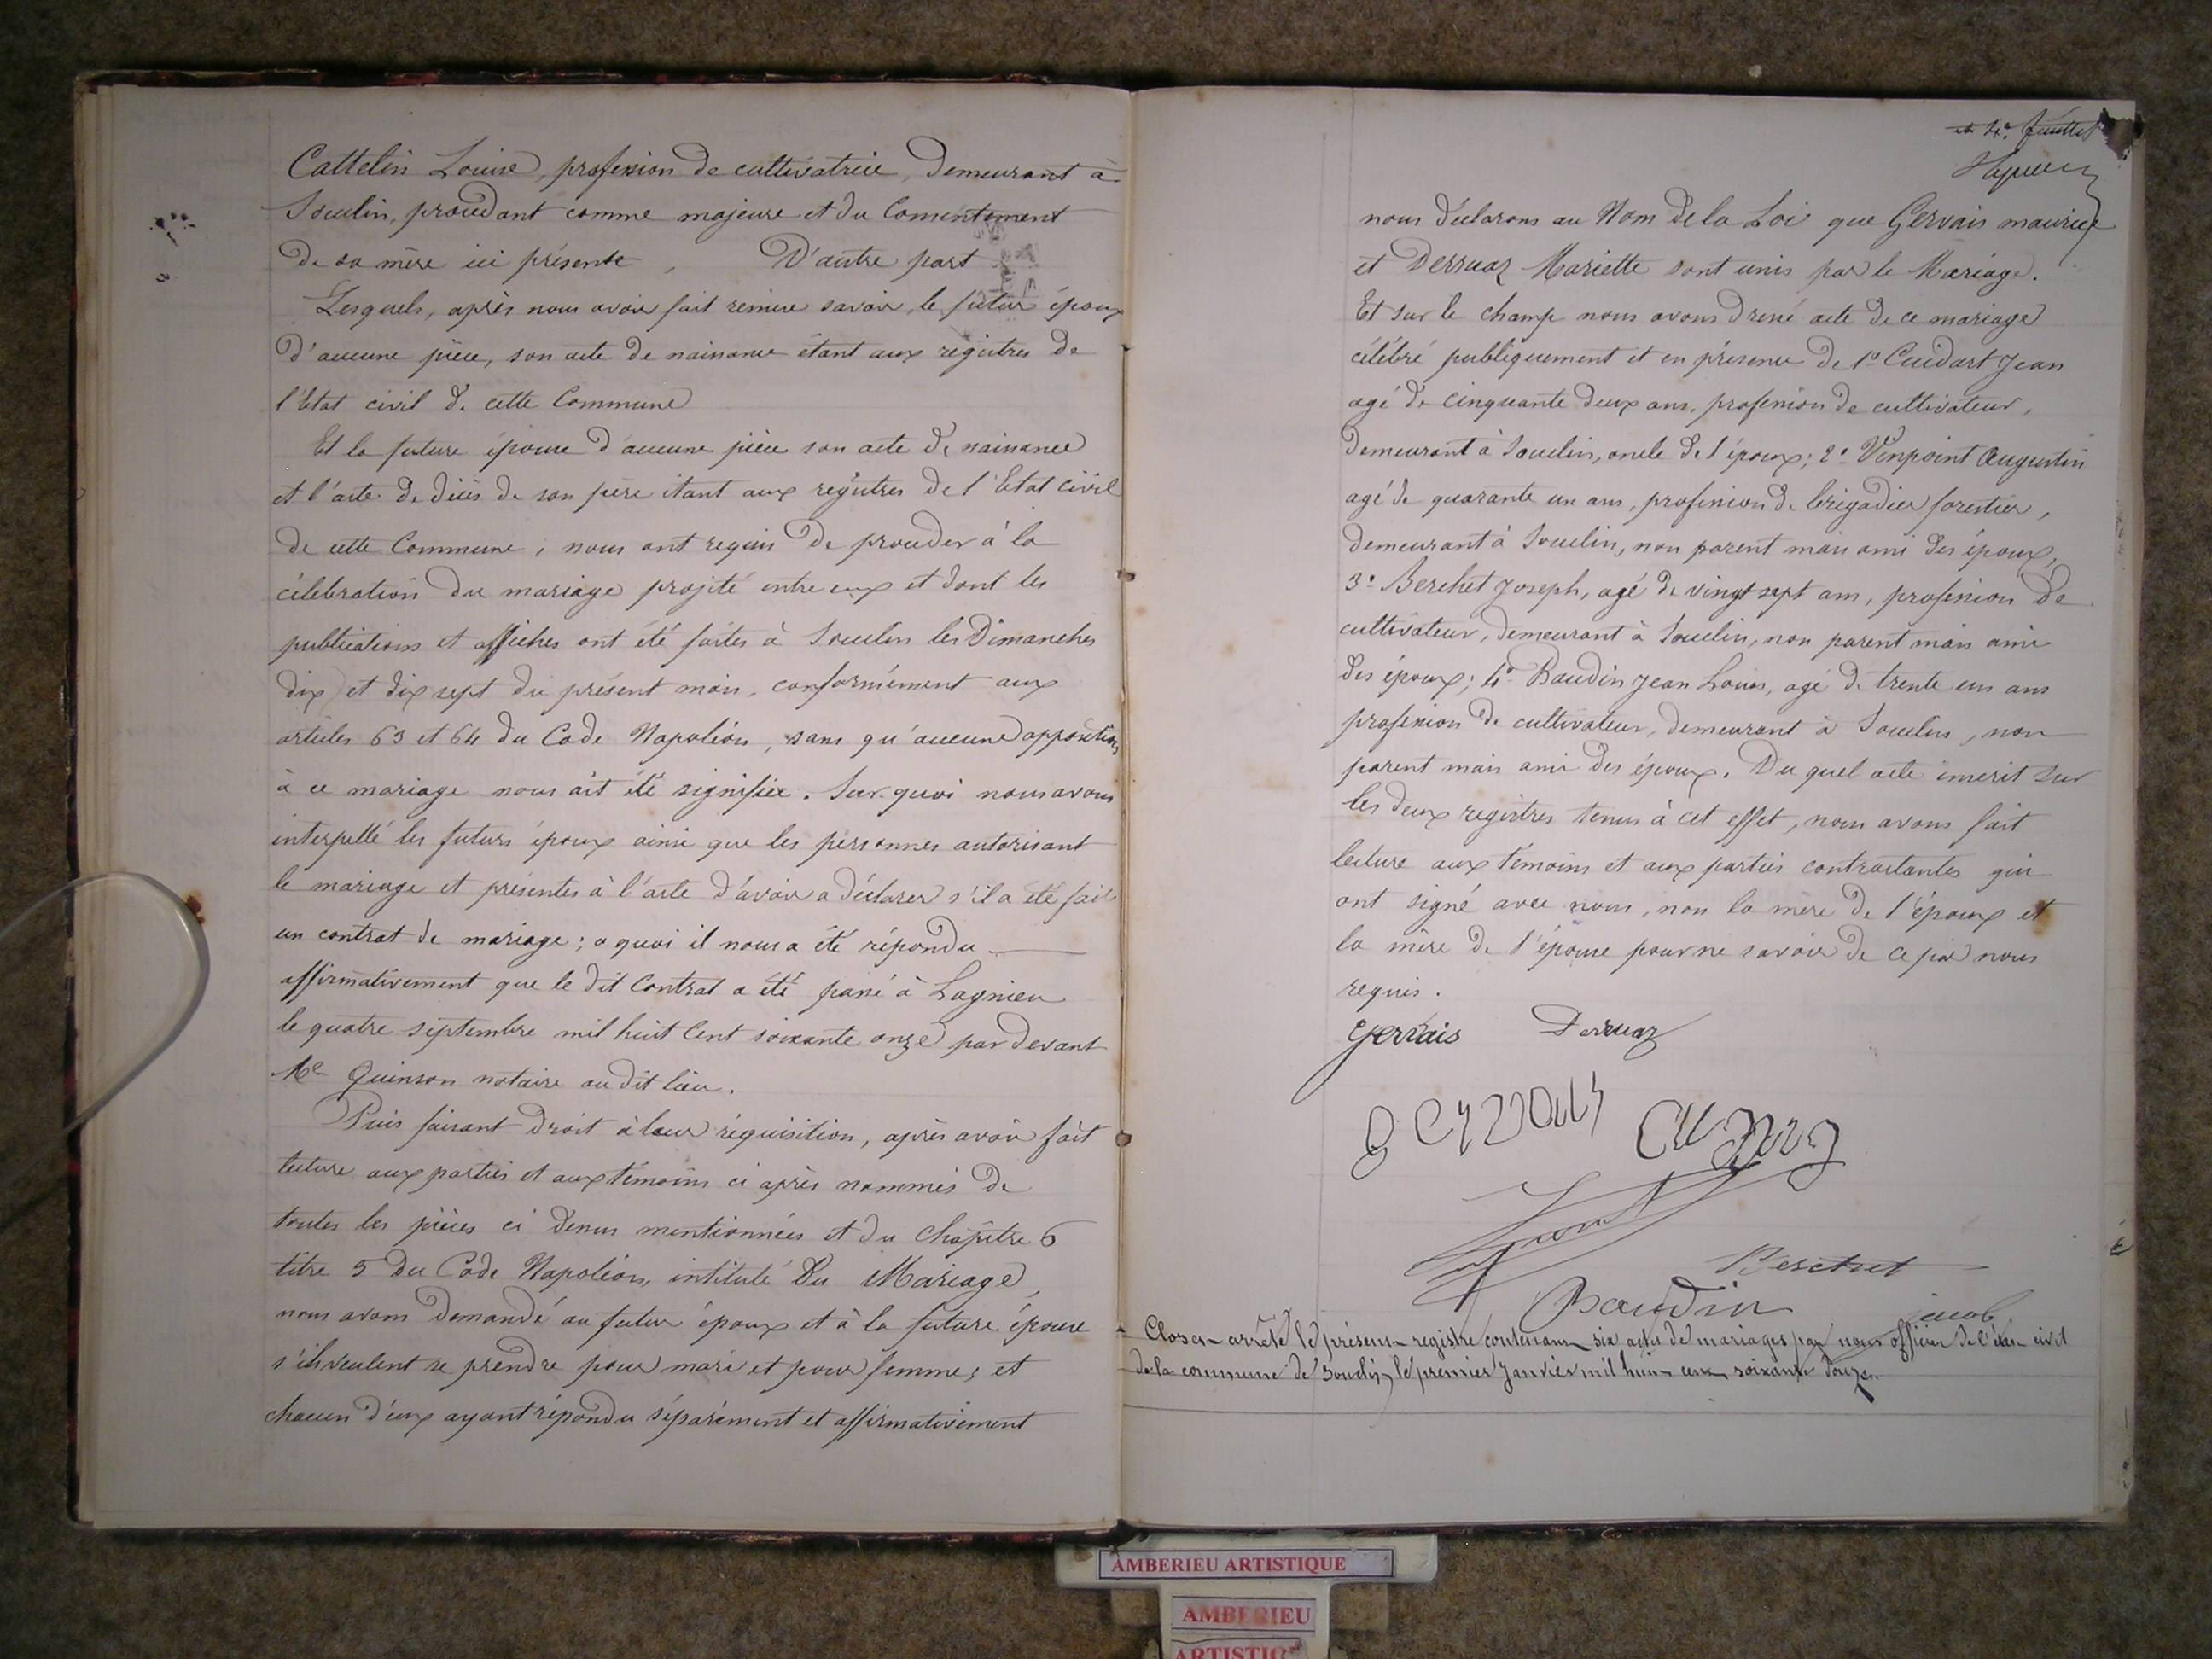 Cattelin Louise, profession de cultivatrice, demeurant à
Souclin, procédant comme majeure et du Consentement
de sa mère ici présente, D'autre part
Lesquels, après nous avoir fait remise savoir, le futur époux
d'aucune pièce, son acte de naissance étant aux registres de
l'Etat civil de cette Commune
Et la future épouse d'aucune pièce son acte de naissance
et l'acte de décès de son père étant aux registres de l'Etat civil
de cette Commune, nous ont requis de procéder à la
célébration du mariage projeté entre eux et dont les
publications et affiches ont été faites à Souclin les Dimanches
dix et dix sept du présent mois, conformément aux
articles 63 et 64 du Code Napoléon, sans qu'aucune opposition
à ce mariage nous ait été signifiée. Sur quoi nous avons
interpellé les futurs époux ainsi que les personnes autorisant
le mariage et présentes à l'acte d'avoir a déclarer s'il a été fait
un contrat de mariage; a quoi il nous a été répondu
affirmativement que le dit Contrat a été passé à Lagnieu
le quatre septembre mil huit Cent soixante onze par devant
Me Quinson notaire au dit lieu.
Puis faisant droit à leur réquisition, après avoir fait
lecture aux parties et aux témoins ci après nommés de
toutes les pièces ci dessus mentionnées et du chapitre 6
titre 5 du Code Napoléon, intitulé Du Mariage,
nous avons demandé au futur époux et à la future épouse
s'ils veulent se prendre pour mari et pour femme; et
chacun d'eux ayant répondu séparément et affirmativement
et 4e feuillet
nous déclarons au Nom de la Loi que Gervais maurice
et Derruaz Mariette sont unis par le Mariage.
Et sur le champ nous avons dressé acte de ce mariage
célébré publiquement et en présence de 1° Cuidart Jean
agé de cinquante deux ans, profession de cultivateur,
demeurant à Souclin, oncle de l'époux; 2° Vinpoint Augustin
agé de quarante un ans, profession de brigadier forestier,
demeurant à Souclin, non parent mais ami des époux,
3° Berchet Joseph, agé de vingt sept ans, profession de
cultivateur, demeurant à Souclin, non parent mais ami
des époux; 4° Baudin Jean Louis, agé de trente un ans
profession de cultivateur, demeurant à Souclin, non
parent mais ami des époux. Du quel acte inscrit sur
les deux registres tenus à cet effet, nous avons fait
lecture aux témoins et aux parties contractantes qui
ont signé avec nous, non la mère de l'époux et
la mère de l'épouse pour ne savoir de ce par nous
requis.
Gervais Derruaz
Berchet
Baudin jacob
Clos et arrêté le présent registre contenant six actes de mariages par nous officier de l'état civil
de la commune de Souclin, le premier Janvier mil huit cent soixante douze.
AMBERIEU ARTISTIQUE
AMBERIEU
ARTISTIQUE